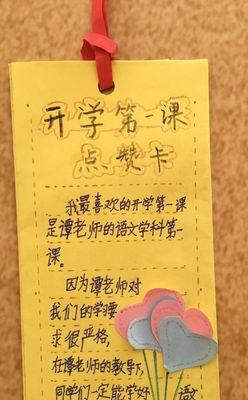 开学第一课
点赞卡
我最喜欢的开学第一课
是谭老师的语文学科第一
课。
因为谭老师对
我们的学
求很严格,
在谭老师的教导下,
同学们一定能学好 语